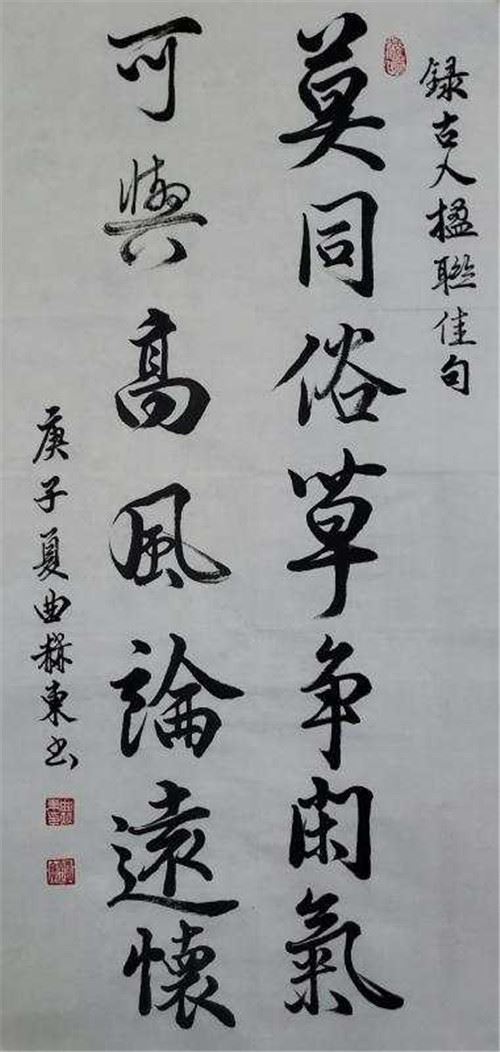 録古人楹聯佳句
莫同俗草争閑氣
可與高風論遠懷
庚子夏曲赫東书